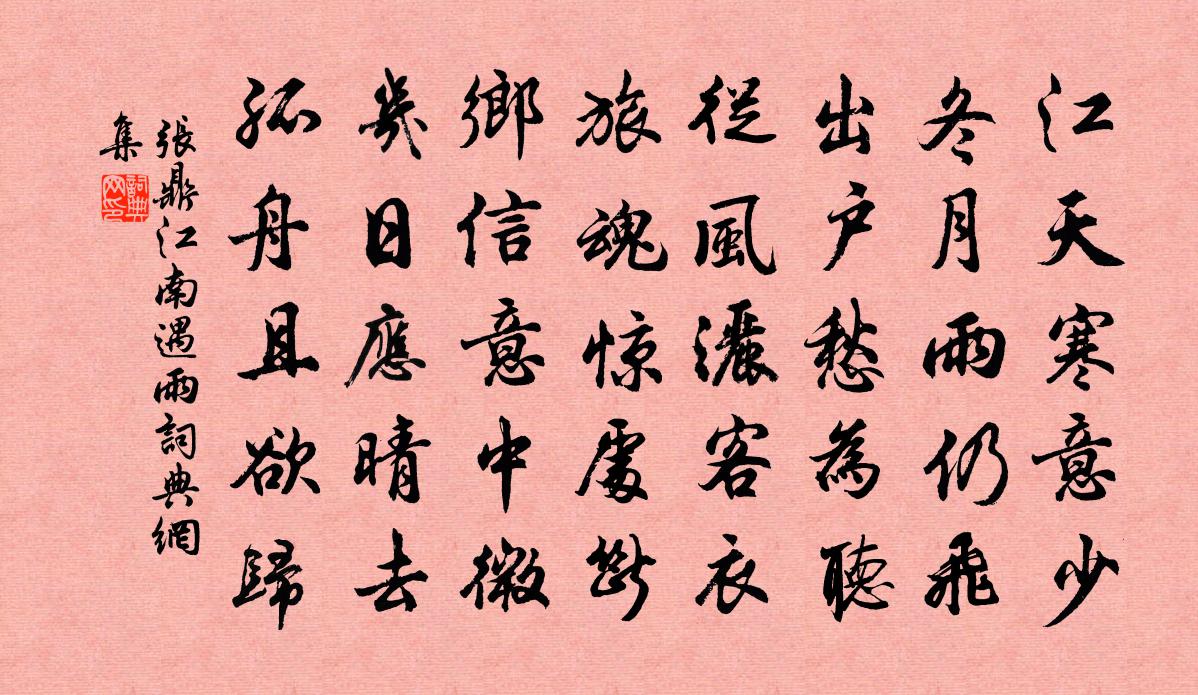 江天寒意少
冬月雨仍飛
出户愁為聽
從風灑客衣
旅魂惊處斷
鄉信意中微
幾日應晴去
孤舟且欲歸
張鼎江南遇雨詞典網
集
詞典
网印